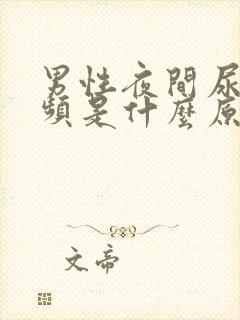 男性夜間尿
頻是什麼原
文帝